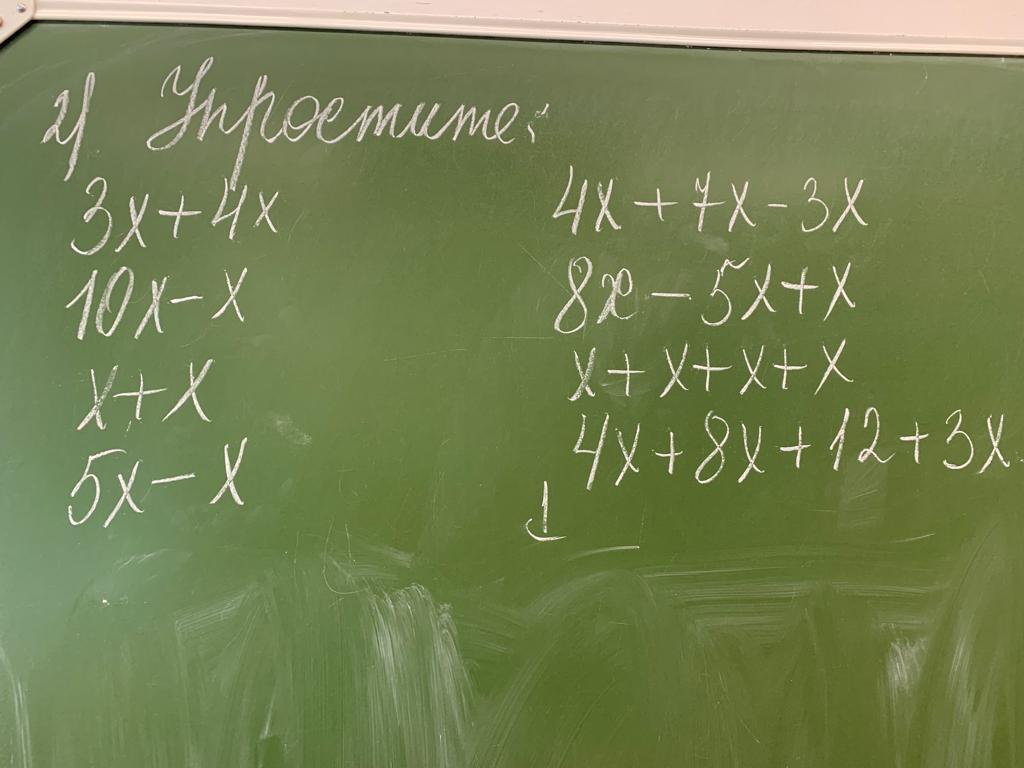 2) Упростите:
3x+4x
10x-x
x+x
5x-x
4x+7x-3x
8x-5x+x
x+x+x+x
4x+8x+12+3x